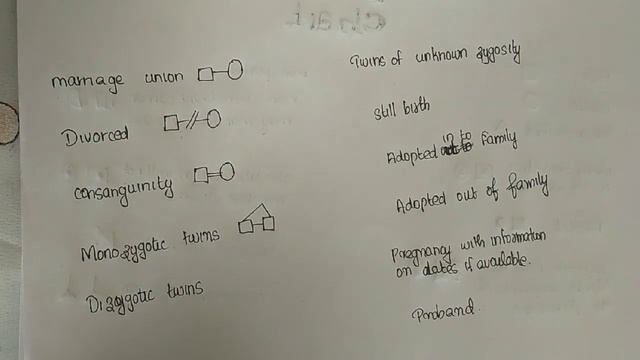 marriage union
Divorced
consanguinity
Monozygotic twins
Dizygotic twins
Twins of unknown zygosity
still birth
Adopted in to family
Adopted out of family
Pregnancy with information
on dates if available.
Proband.